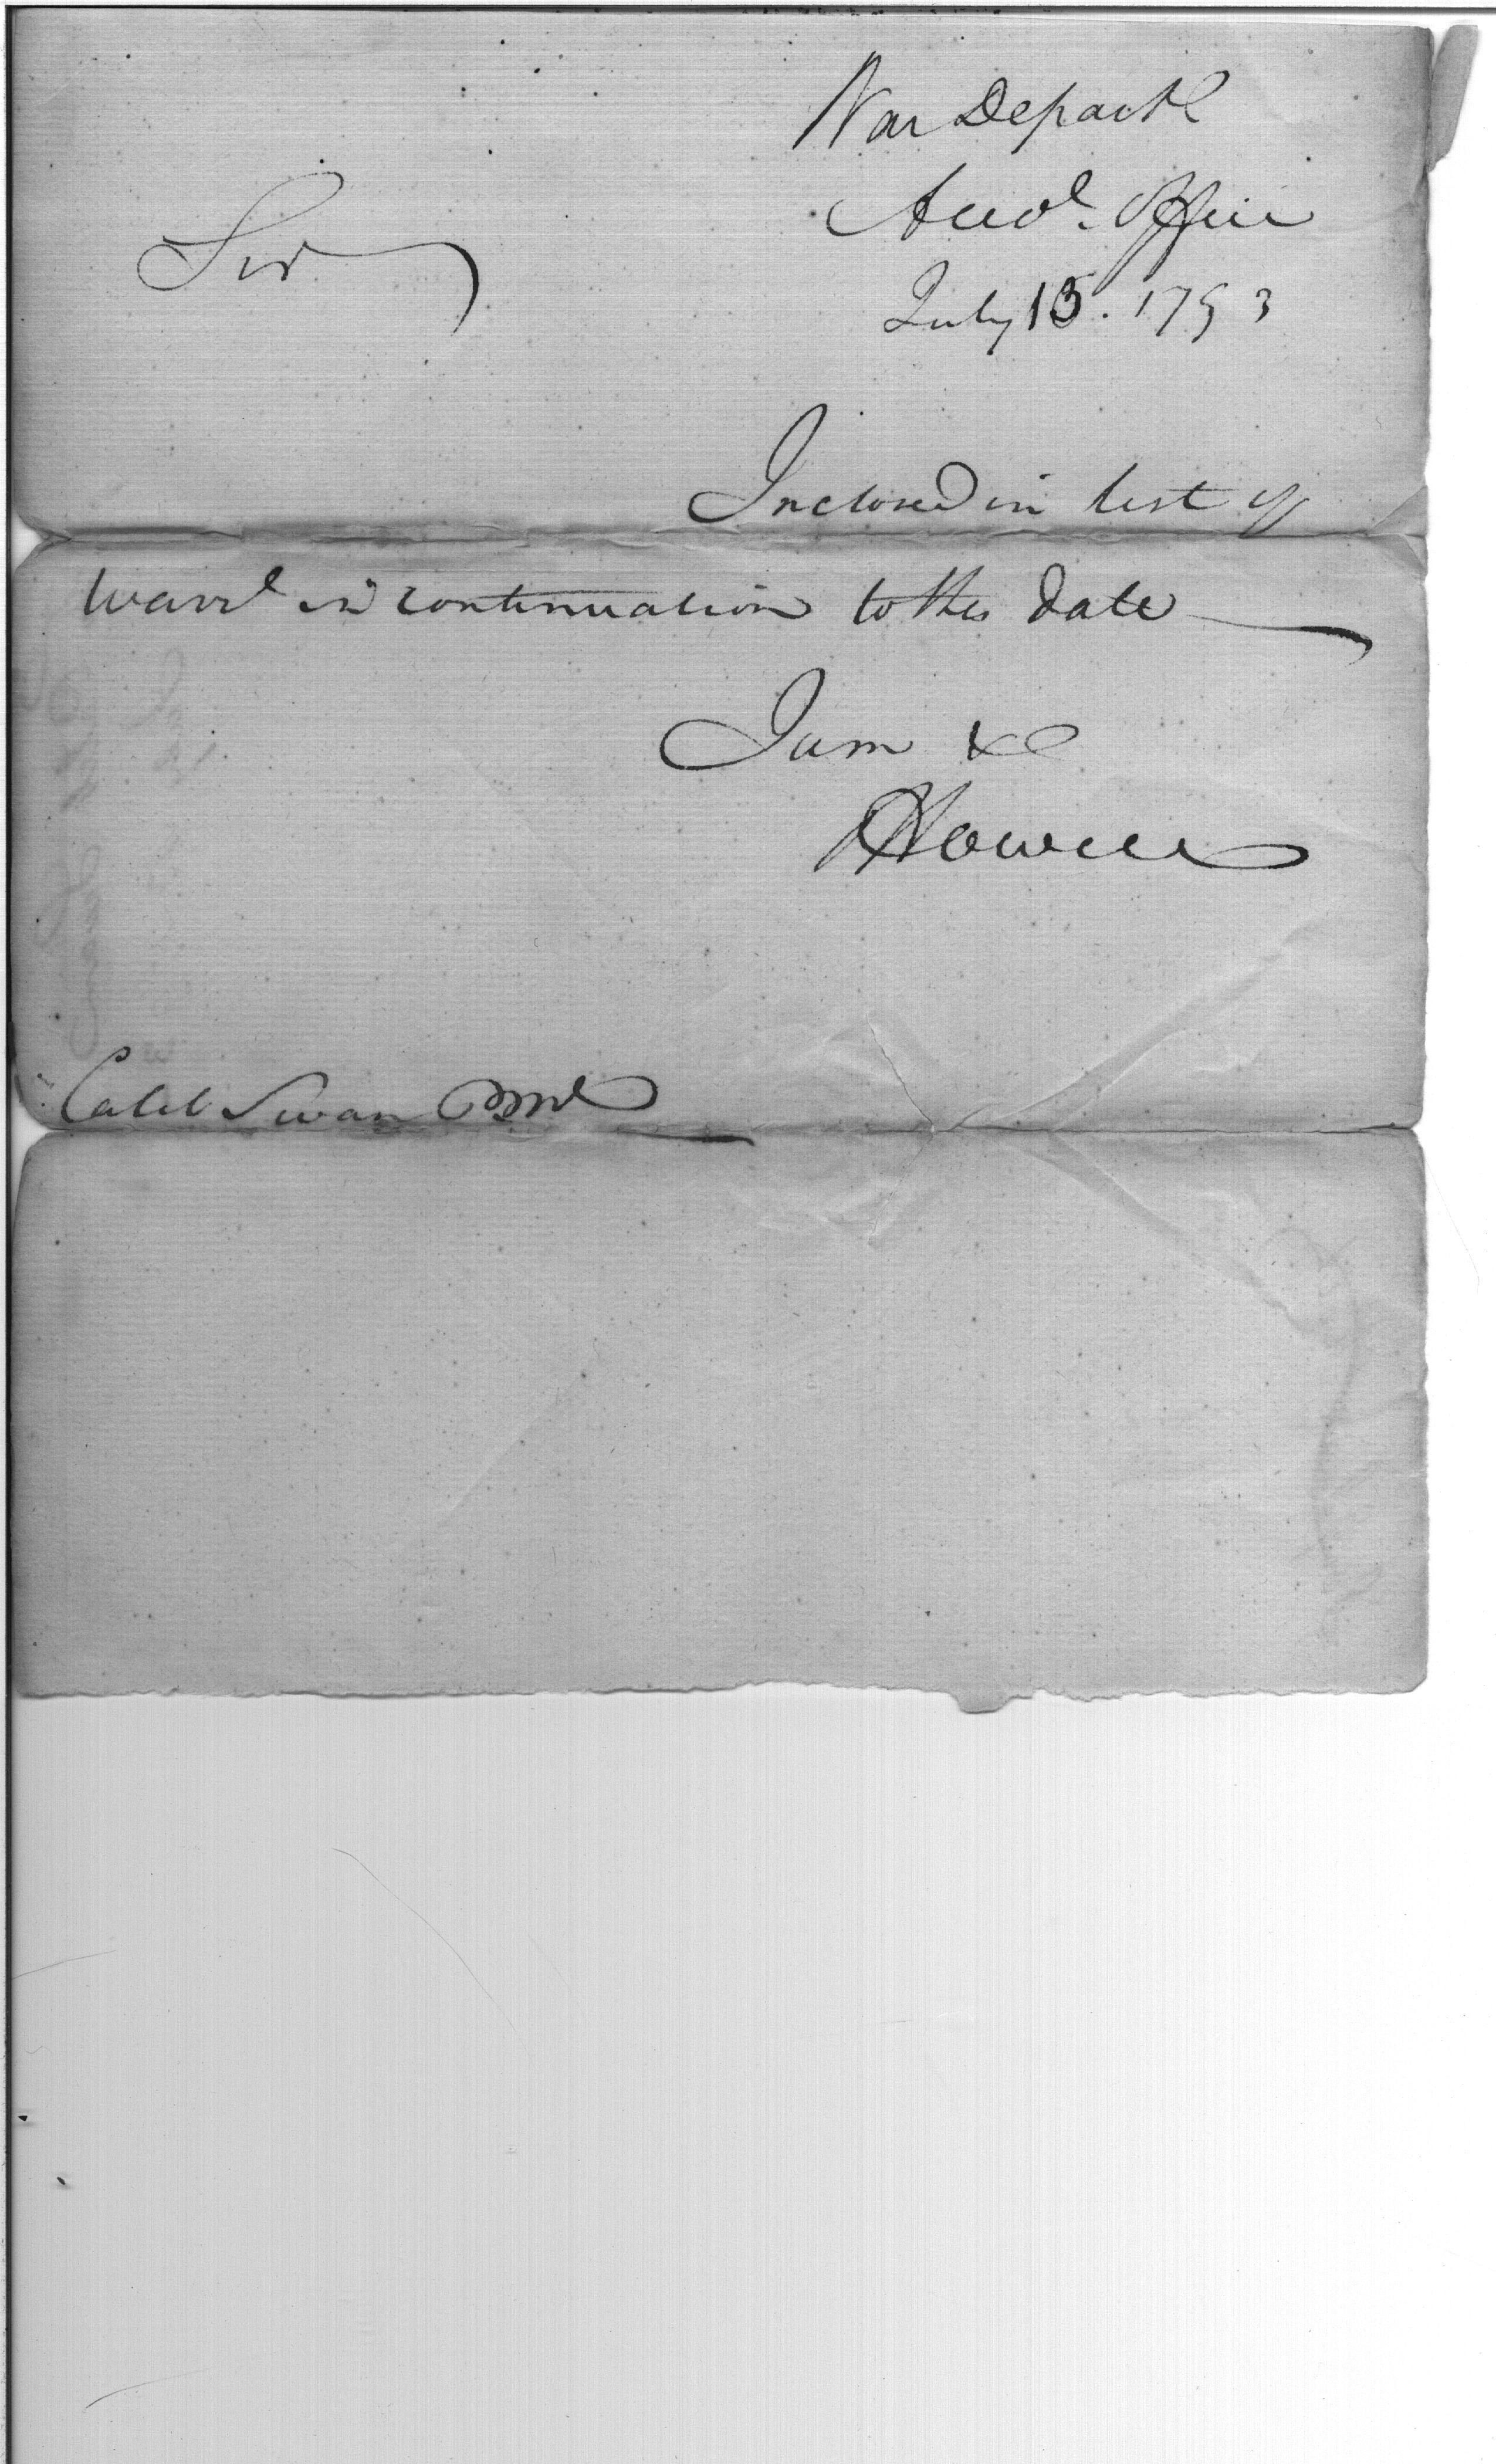 War Departt
Acco't. Office
Sir
July 15. 1793
Inclosed in list of
warrts in continuation to this date
I am &c
JHowell
Caleb Swan PM